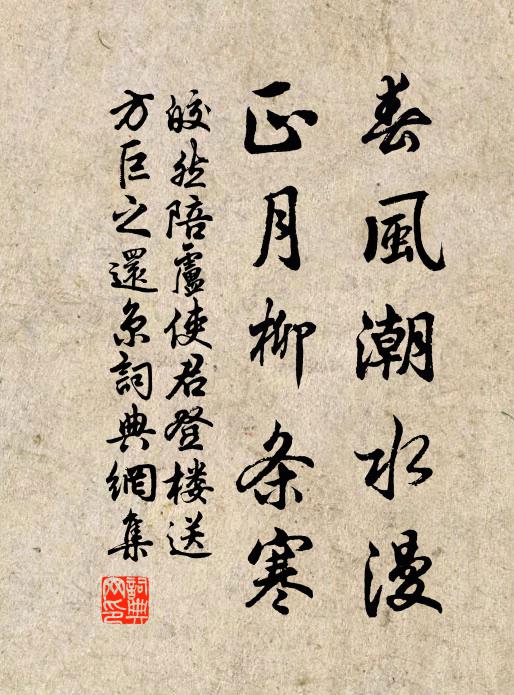 春風潮水漫
正月柳条寒
皎然陪盧使君登楼送
方巨之還京詞典網集
詞典网印